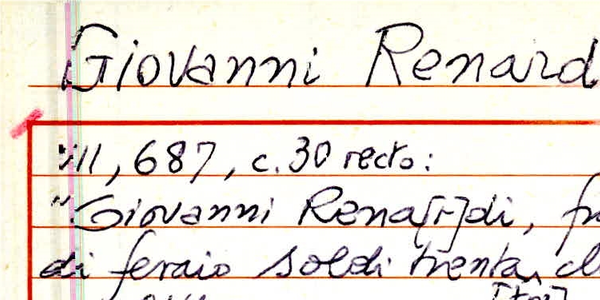 Giovanni Renard
III, 687, c. 30 recto:
"Giovanni Rena[r]di, fr
di feraio soldi trenta, ch